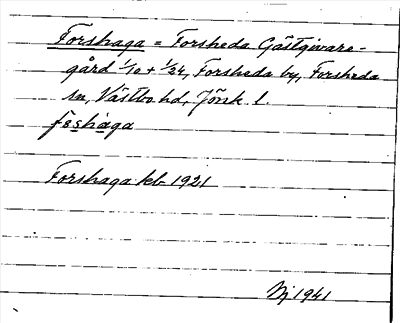 Forshaga = Forsheda Gästgivare-
gård 1/10 + 1/24, Forsheda by, Forsheda
sn, Västbo hd, Jönk. l.
fɷshaga
Forshaga kb 1921
Nj 1941